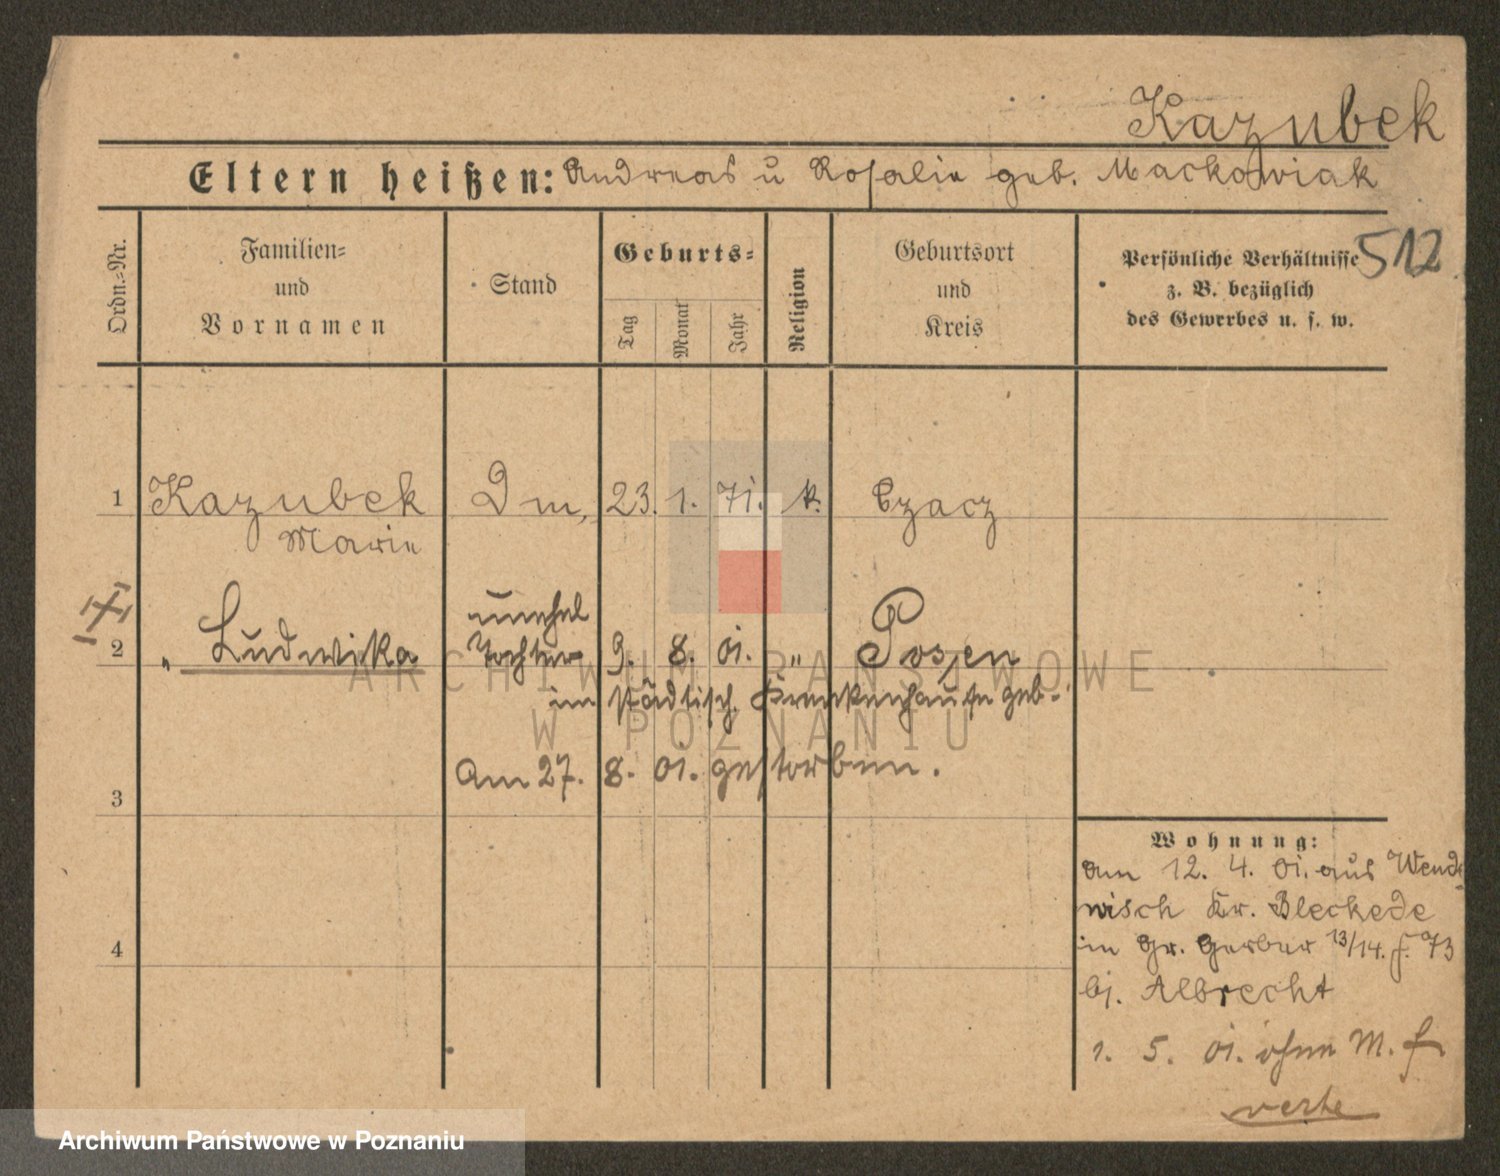 Kazubek
Eltern heißen: Andreas u Rosalie geb. Mackowiak
512
Ordn.=Nr.
Familien=
und
Vornamen
Stand
Geburts=
Tag
Monat
Jahr
Religion
Geburtsort
und
Kreis
Persönliche Verhältnisse
z. B. bezüglich
des Gewerbes u. s. w.
1 Kazubek Dm, 23. 1. 71. k. Czacz
Marie
unehel
2 " Ludwika Tochter 9. 8. 01. " Posen
im städtisch. Krankenhause geb.
am 27. 8. 01. gestorben.
3
4
Wohnung:
am 12. 4. 01. aus Wend=
wisch Kr. Bleckede
in Gr. Gerber 13/14. f. 73
bj. Albrecht
1. 5. 01. ohne M. f
verte
ARCHIWUM PAŃSTWOWE
W POZNANIU
Archiwum Państwowe w Poznaniu